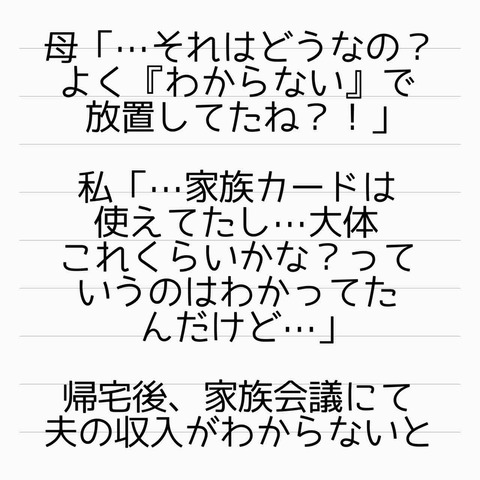 母「…それはどうなの？
よく『わからない』で
放置してたね？！」
私「…家族カードは
使えてたし…大体
これくらいかな？って
いうのはわかってた
んだけど…」
帰宅後、家族会議にて
夫の収入がわからないと